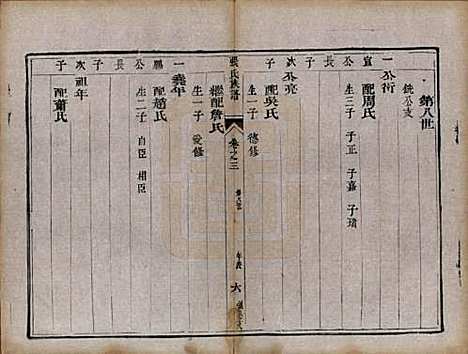 第八世
銑公支
宣公長子
一公衍
配周氏
生三子 子正 子嘉 子靖
次子
公亮
配吳氏
生一子 德修
繼配詹氏
生一子 愛修
張氏族譜
卷之三
六
鵬公長子
一堯年
配趙氏
生二子 自臣 相臣
次子
祖年
配蕭氏